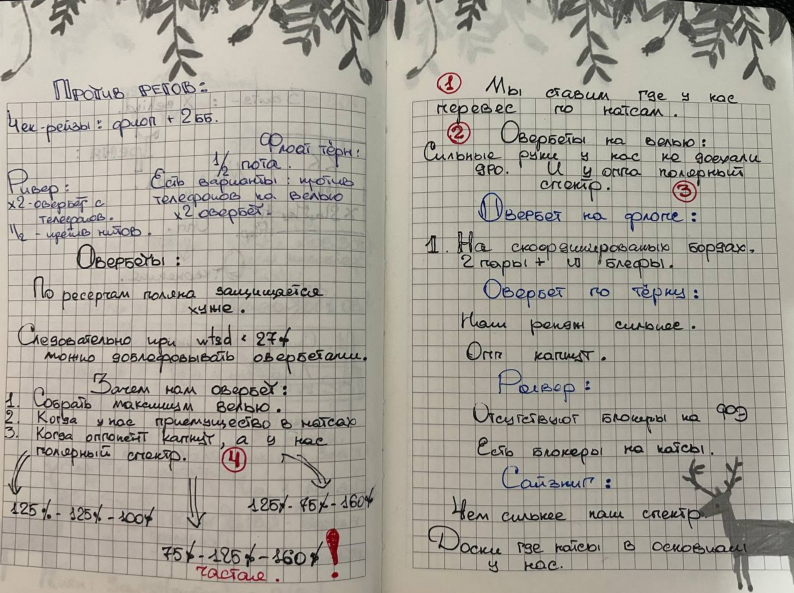 Против регов:
Чек-рейзы: флоп + 2ББ.
Флоат тёрн:
1/2 пота.
Ривер:
x2-овербет с
телефонов.
1/2 - против нитов.
Есть варианты: против
телефонов на велью
x2 овербет.
Овербеты:
По ресерчам поляна защищается
хуже.
Следовательно при wtsd < 27%
можно доблефовывать овербетами.
Зачем нам овербет:
1. Собрать максимум велью.
2. Когда у нас приемущество в натсах
3. Когда оппонент капнут, а у нас
полярный спектр.
4
125% - 125% - 100%
125% - 75% - 160%
75% - 125% - 160% !
частая.
1 Мы ставим где у нас
перевес по натсам.
2 Овербеты на велью:
Сильные руки у нас не доехали
дро. И у оппа полярный
спектр. 3
Овербет на флопе:
1. На скоординированых бордах.
2 пары + и блефы.
Овербет по тёрну:
Наш рендж сильнее.
Опп капнут.
Ривер:
Отсутствуют блокеры на ФОЭ
Есть блокеры на натсы.
Сайзинг:
Чем сильнее наш спектр
Доски где натсы в основном
у нас.